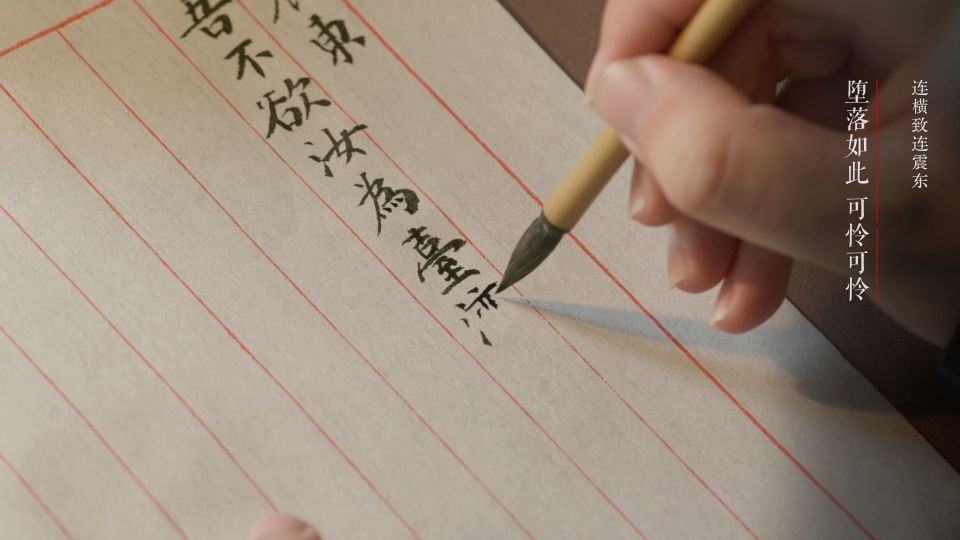 连横致连震东
堕落如此 可怜可怜
東
吾不欲汝為臺